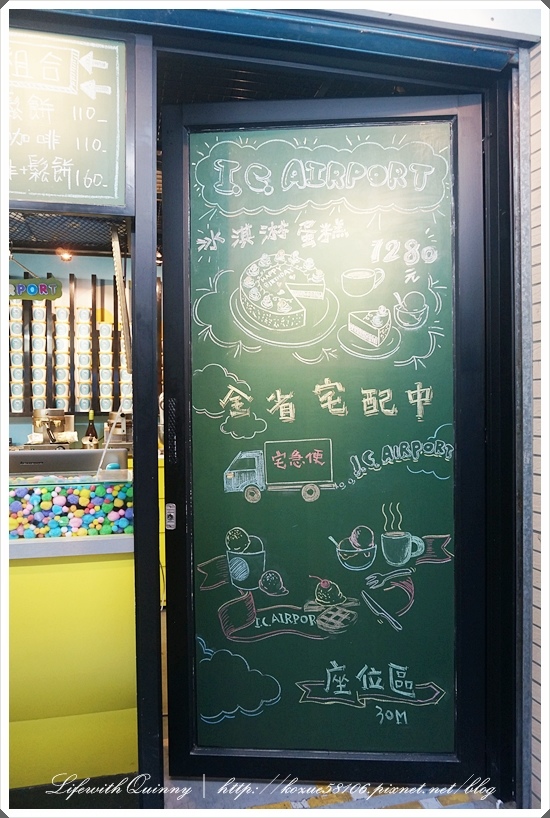 組合
鬆餅 110
咖啡 110
啡+鬆餅 160
RPORT
I.C. AIRPORT
冰淇淋蛋糕
1280元
HAPPY BIRTHDAY
全省宅配中
宅急便
I.C. AIRPORT
I.C. AIRPOR
座位區
30M
Lifewith Quinny | http://kozue58106.pixnet.net/blog